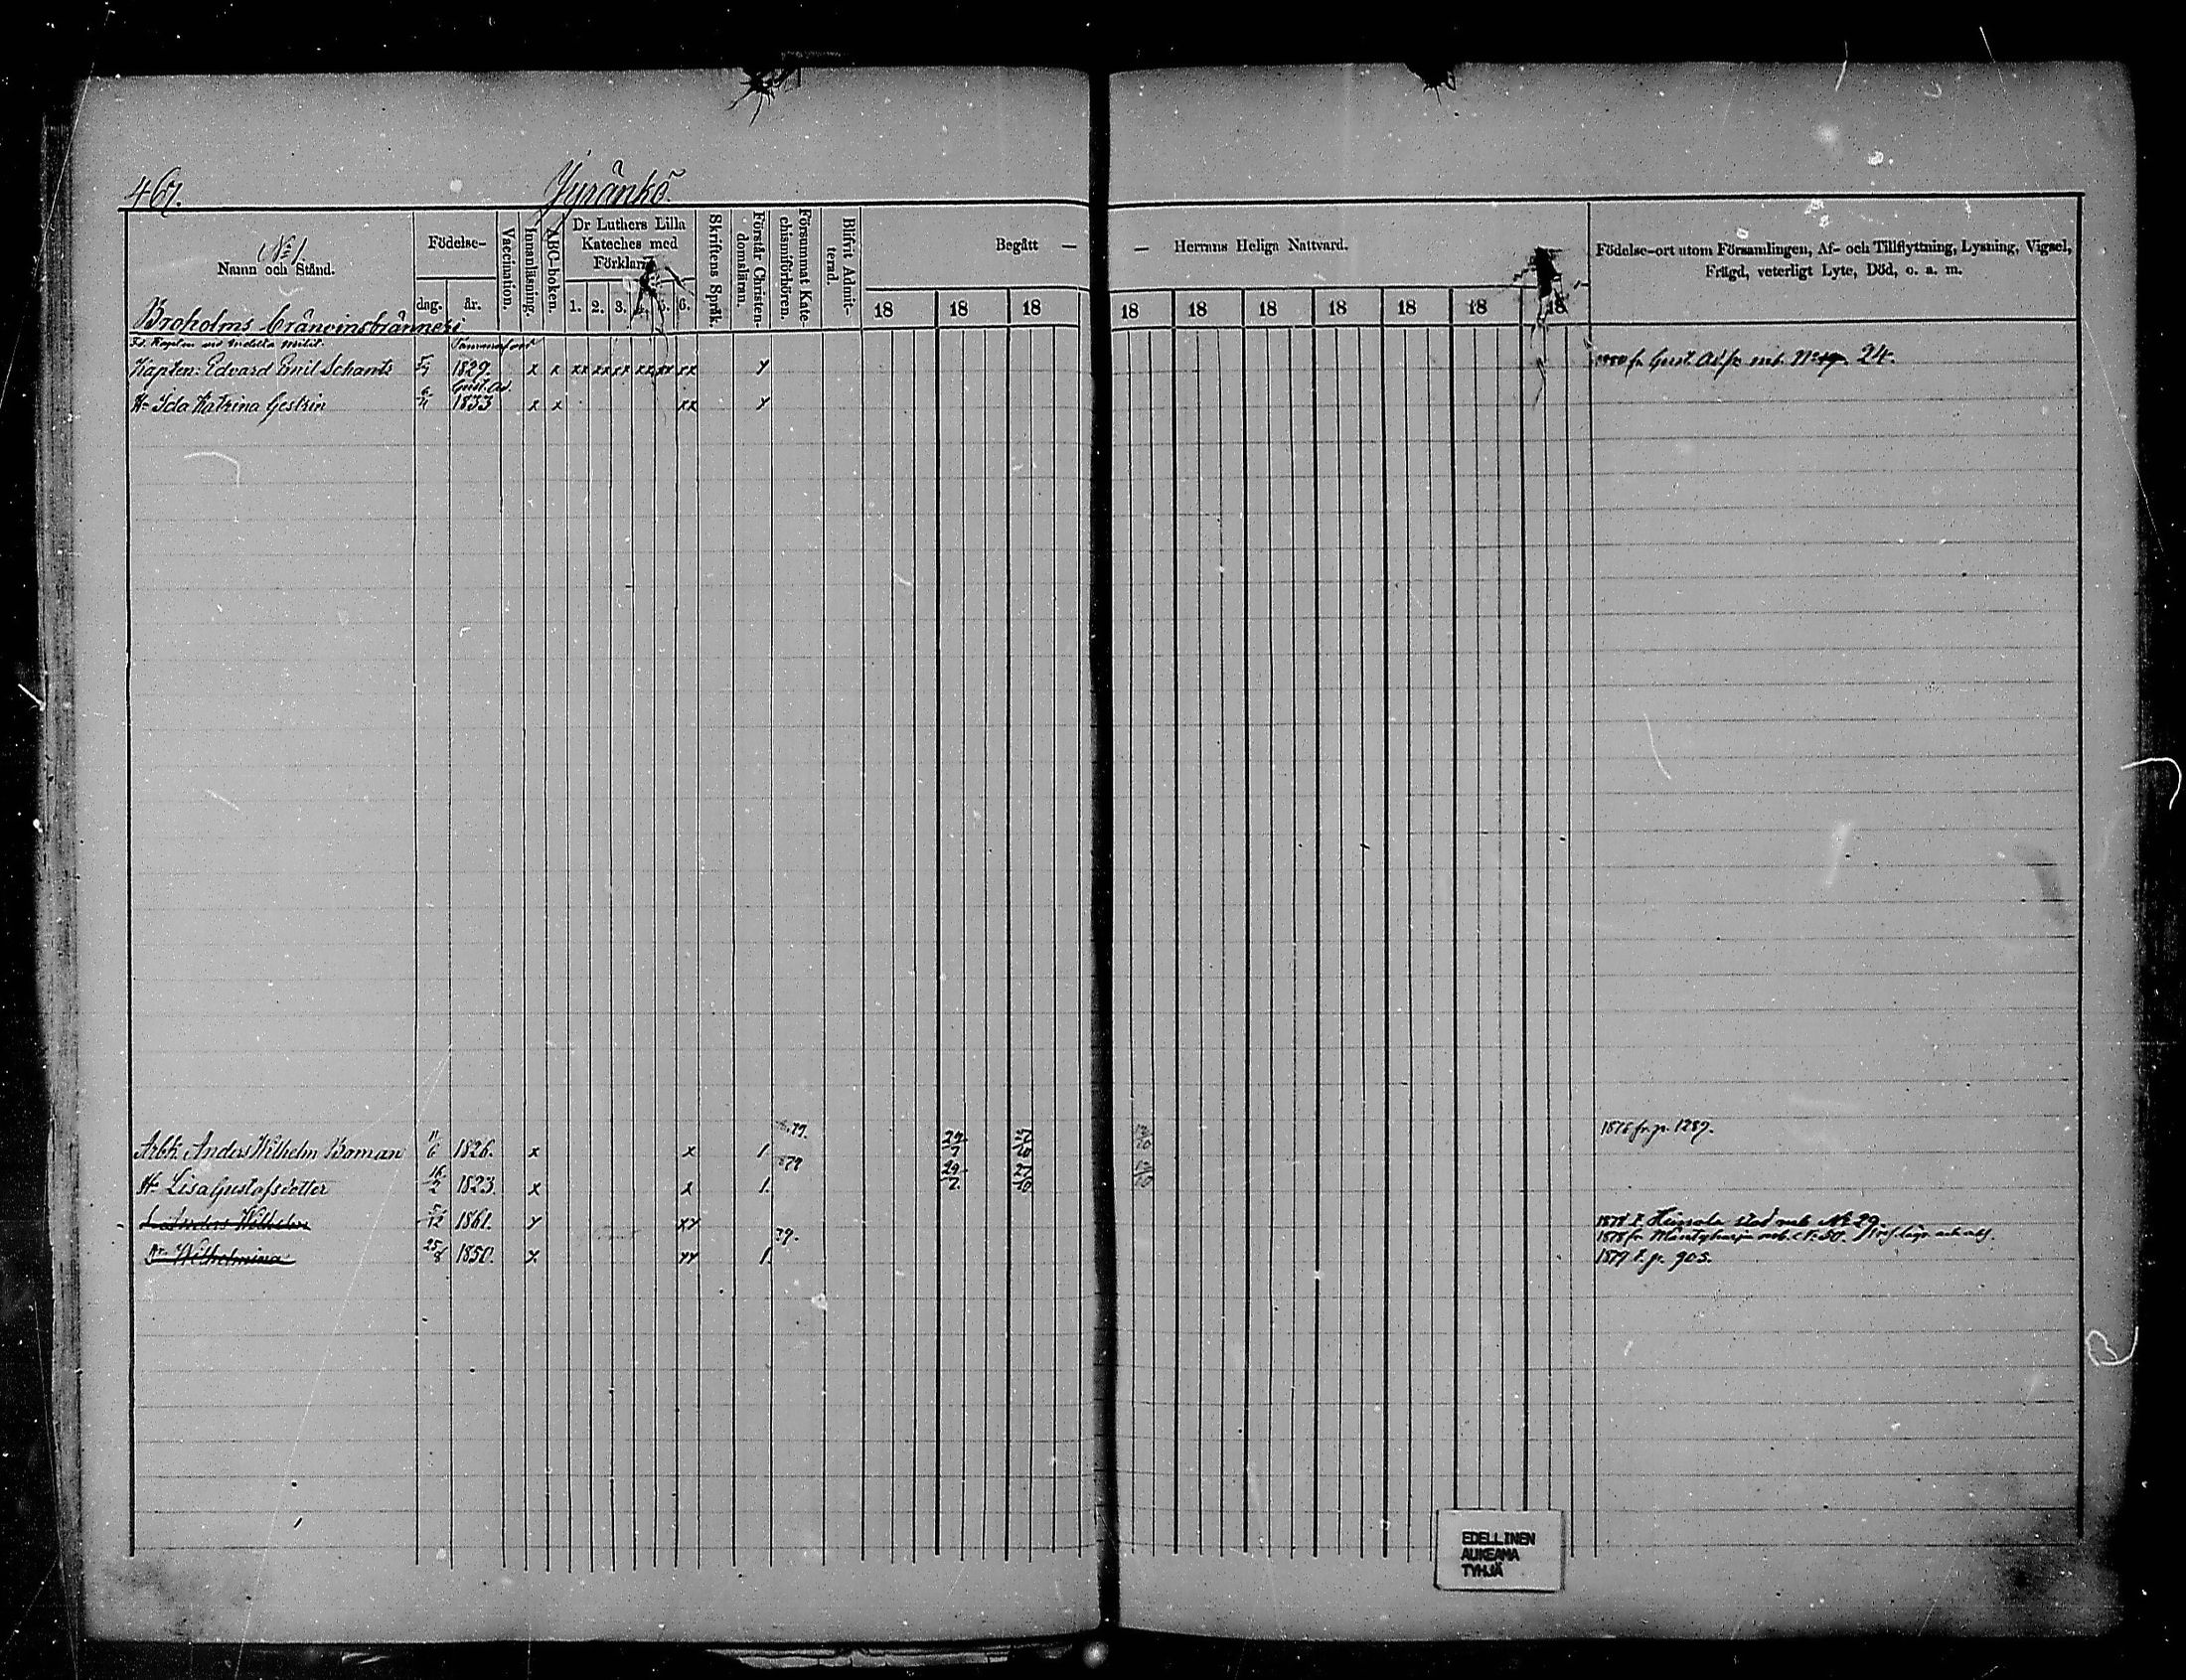 461.
Jyränkö.
No 1.
Namn och Stånd.
Födelse-
dag. år.
Vaccination.
Innanläsning.
ABC-boken.
Dr Luthers Lilla
Kateches med
1. 2. 3. 5. 6.
Skriftens Språk.
Förstår Christen-
domsläran.
Försummat Kate-
chismiförhören.
Blifvit Admit-
terad.
Begått — — Herrans Heliga Nattvard.
18 18 18 18 18 18 18 18 18 18
Födelse-ort utom Församlingen, Af- och Tillflyttning, Lysning, Vigsel,
Frägd, veterligt Lyte, Död, o. a. m.
Broholms bränvinsbränneri
Kapten: Edvard Emil Schants 1829. x x xx xx xx xx xx xx y fr. Gust. Adf. 24.
Gust. Ad.
Hu Ida Katrina Gestrin 1833 x x xx y
Arbk. Anders Wilhelm Boman 11/6 1826. x x 1 1878 fr. p. 1287.
Hu Lisa Gustafsdotter 16/2 1823. x x 1. 79 29/7 27/10
Anders Wilhelm 5/12 1861. y xy 1878 t. Heinola stad No 29.
1878 fr. Mäntyharju
Wilhelmina 25/8 1850. y yy 1. 79. 1879 t. p. 903.
EDELLINEN
AUKEAMA
TYHJÄ